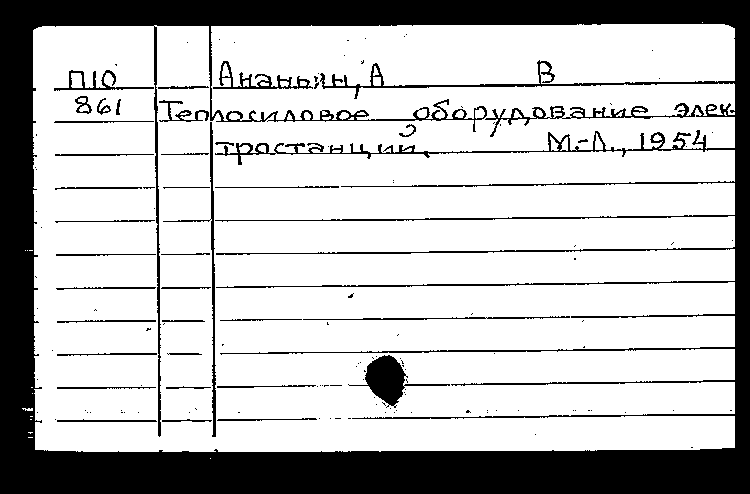 П10 Ананьин, А В
861 Теплосиловое оборудование элек-
тростанций. М.-Л., 1954